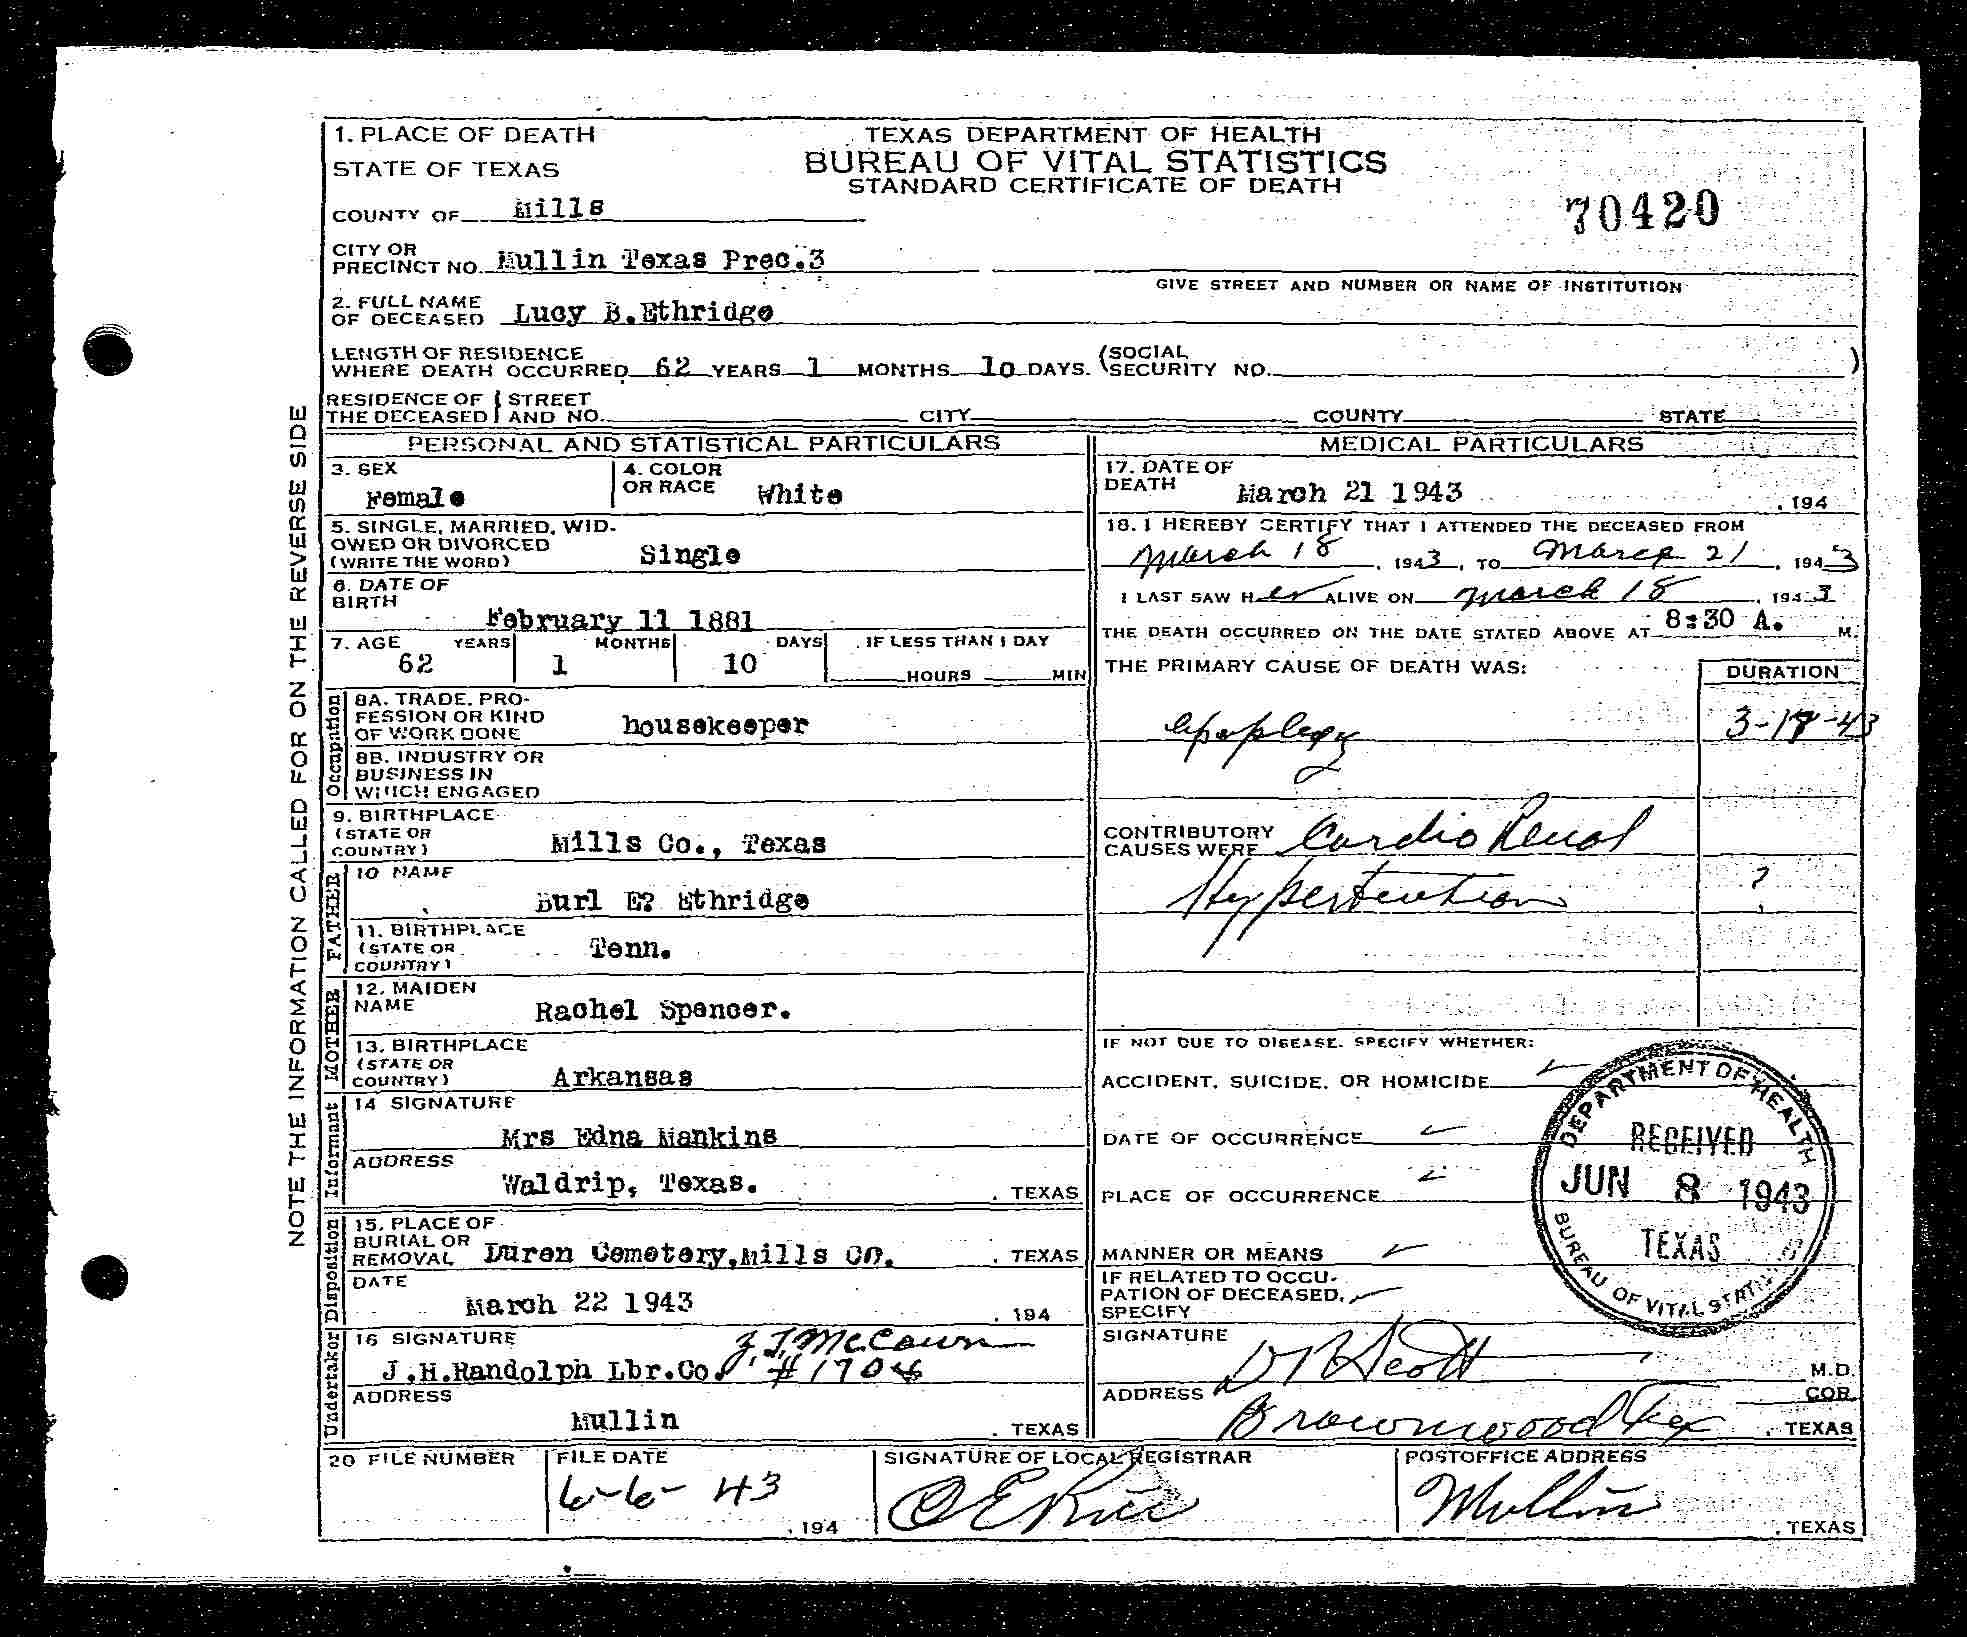 1. PLACE OF DEATH
STATE OF TEXAS
COUNTY OF Mills
TEXAS DEPARTMENT OF HEALTH
BUREAU OF VITAL STATISTICS
STANDARD CERTIFICATE OF DEATH
70420
CITY OR
PRECINCT NO. Mullin Texas Prec.3
GIVE STREET AND NUMBER OR NAME OF INSTITUTION
2. FULL NAME
OF DECEASED Lucy B.Ethridge
LENGTH OF RESIDENCE
WHERE DEATH OCCURRED 62 YEARS 1 MONTHS 10 DAYS. (SOCIAL
SECURITY NO. )
RESIDENCE OF STREET
THE DECEASED AND NO. CITY COUNTY STATE
NOTE THE INFORMATION CALLED FOR ON THE REVERSE SIDE
PERSONAL AND STATISTICAL PARTICULARS
3. SEX
Female
4. COLOR
OR RACE White
5. SINGLE, MARRIED, WID-
OWED OR DIVORCED
(WRITE THE WORD) Single
6. DATE OF
BIRTH
February 11 1881
7. AGE YEARS MONTHS DAYS IF LESS THAN 1 DAY
62 1 10 HOURS MIN
Occupation
8A. TRADE, PRO-
FESSION OR KIND
OF WORK DONE housekeeper
8B. INDUSTRY OR
BUSINESS IN
WHICH ENGAGED
9. BIRTHPLACE
(STATE OR
COUNTRY) Mills Co., Texas
FATHER
10 NAME
Burl E? Ethridge
11. BIRTHPLACE
(STATE OR
COUNTRY) Tenn.
MOTHER
12. MAIDEN
NAME Rachel Spencer.
13. BIRTHPLACE
(STATE OR
COUNTRY) Arkansas
Informant
14 SIGNATURE
Mrs Edna Mankins
ADDRESS
Waldrip, Texas. , TEXAS
Disposition
15. PLACE OF
BURIAL OR
REMOVAL Duren Cemetery,Mills CO. , TEXAS
DATE
March 22 1943 , 194
Undertaker
16 SIGNATURE Z.T. McCown
J.H.Randolph Lbr.Co. #1704
ADDRESS
Mullin , TEXAS
MEDICAL PARTICULARS
17. DATE OF
DEATH March 21 1943 , 194
18. I HEREBY CERTIFY THAT I ATTENDED THE DECEASED FROM
March 18 , 1943, TO March 21 , 1943
I LAST SAW Her ALIVE ON March 18 , 1943
THE DEATH OCCURRED ON THE DATE STATED ABOVE AT 8:30 A. M.
THE PRIMARY CAUSE OF DEATH WAS:
DURATION
apoplexy 3-17-43
CONTRIBUTORY
CAUSES WERE Cardio Renal
Hypertention ?
IF NOT DUE TO DISEASE, SPECIFY WHETHER:
ACCIDENT, SUICIDE, OR HOMICIDE
DATE OF OCCURRENCE
PLACE OF OCCURRENCE
MANNER OR MEANS
IF RELATED TO OCCU-
PATION OF DECEASED,
SPECIFY
DEPARTMENT OF HEALTH
RECEIVED
JUN 8 1943
TEXAS
BUREAU OF VITAL STATISTICS
SIGNATURE
Scott M.D.
COR.
ADDRESS
Brownwood Tex , TEXAS
20 FILE NUMBER
FILE DATE
6-6-43
, 194
SIGNATURE OF LOCAL REGISTRAR
O E Rice
POSTOFFICE ADDRESS
Mullin
, TEXAS